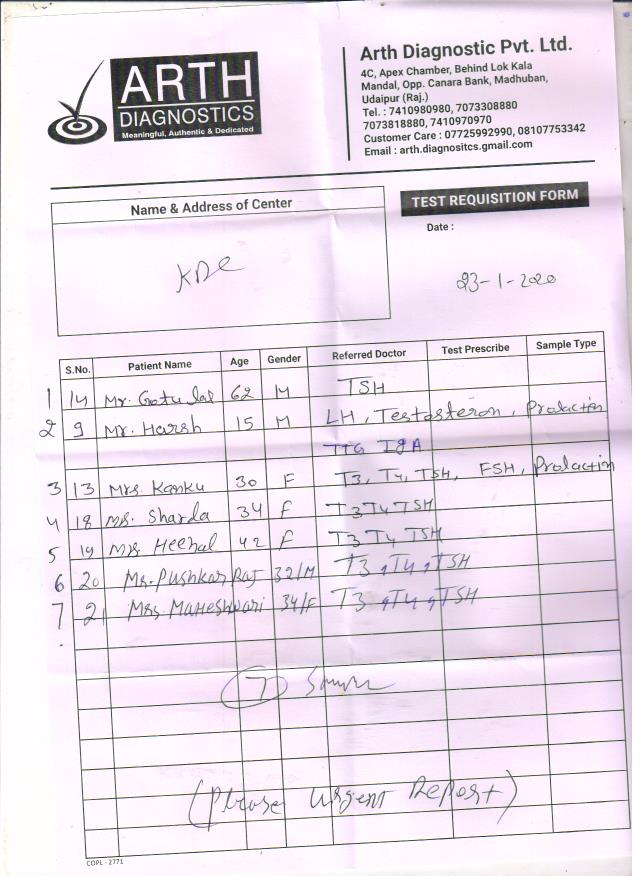 ARTH
DIAGNOSTICS
Meaningful, Authentic & Dedicated
Arth Diagnostic Pvt. Ltd.
4C, Apex Chamber, Behind Lok Kala
Mandal, Opp. Canara Bank, Madhuban,
Udaipur (Raj.)
Tel. : 7410980980, 7073308880
7073818880, 7410970970
Customer Care : 07725992990, 08107753342
Email : arth.diagnositcs.gmail.com
Name & Address of Center
KDC
TEST REQUISITION FORM
Date :
23-1-2020
S.No. Patient Name Age Gender Referred Doctor Test Prescribe Sample Type
1 14 Mr. Gotulal 62 M TSH
2 9 Mr. Harsh 15 M LH, Testosteron, Prolactin
TTG IgA
3 13 Mrs. Kanku 30 F T3, T4, TSH, FSH, Prolactin
4 18 Ms. Sharda 34 F T3 T4 TSH
5 19 Mrs. Heenal 42 F T3 T4 TSH
6 20 Mr. Pushkar Raj 32/M T3, T4, TSH
7 21 Mrs Maheshwari 34/F T3, T4, TSH
7
(Please urgent Report)
COPL - 2771